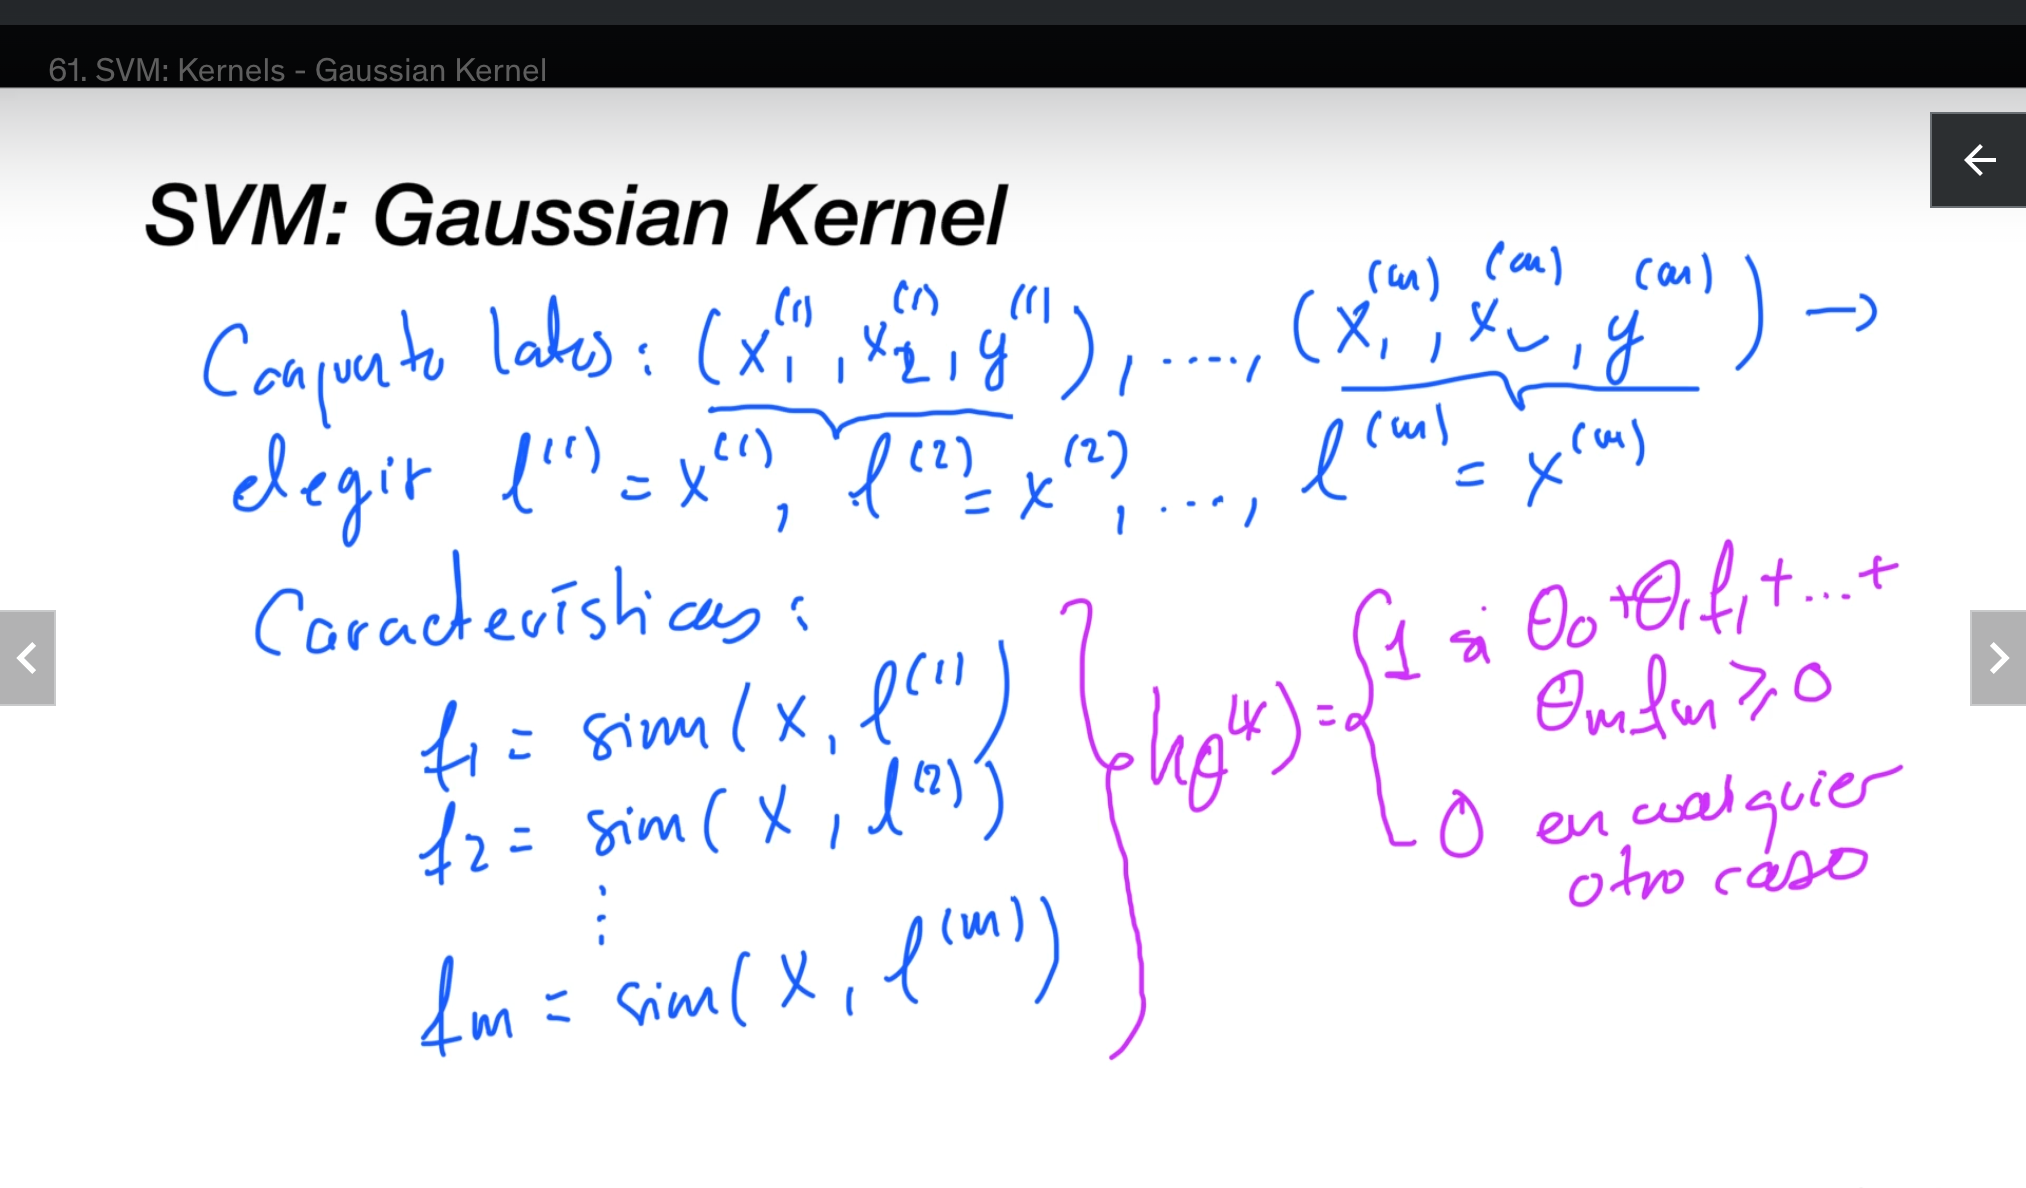 61. SVM: Kernels - Gaussian Kernel
SVM: Gaussian Kernel
Conjunto datos: (x₁⁽¹⁾, x₂⁽¹⁾, y⁽¹⁾), ...., (x₁⁽ᵐ⁾, x₂⁽ᵐ⁾, y⁽ᵐ⁾) →
elegir l⁽¹⁾ = x⁽¹⁾, l⁽²⁾ = x⁽²⁾, ..., l⁽ᵐ⁾ = x⁽ᵐ⁾
Características:
f₁ = sim(x, l⁽¹⁾)
f₂ = sim(x, l⁽²⁾)
⋮
fₘ = sim(x, l⁽ᵐ⁾)
hθ(x) = { 1 si θ₀ + θ₁f₁ + ... +
θₘfₘ ≥ 0
0 en cualquier
otro caso